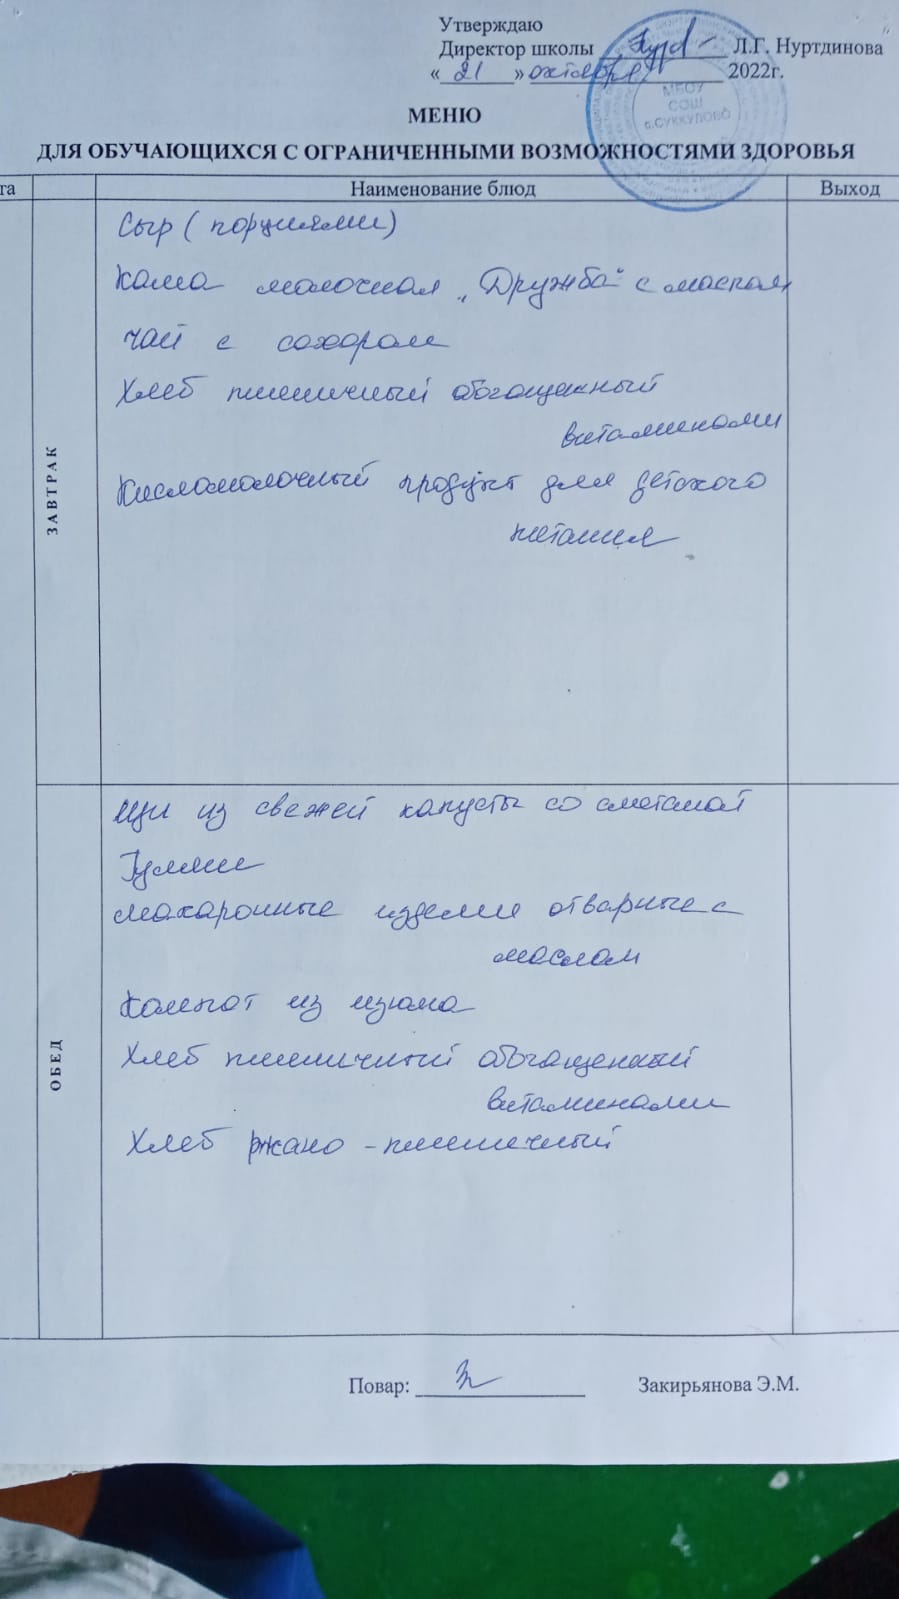 Утверждаю
Директор школы Л.Г. Нуртдинова
« 21 » октября 2022г.
МБОУ
СОШ
с.СУККУЛОВО
МЕНЮ
ДЛЯ ОБУЧАЮЩИХСЯ С ОГРАНИЧЕННЫМИ ВОЗМОЖНОСТЯМИ ЗДОРОВЬЯ
та Наименование блюд Выход
ЗАВТРАК
Сыр (порциями)
Каша молочная „Дружба" с маслом
Чай с сахаром
Хлеб пшеничный обогащенный
витаминами
Кисломолочный продукт для детского
питания
ОБЕД
Щи из свежей капусты со сметаной
Гуляш
Макаронные изделия отварные с
маслом
Компот из изюма
Хлеб пшеничный обогащенный
витаминами
Хлеб ржано - пшеничный
Повар: Закирьянова Э.М.